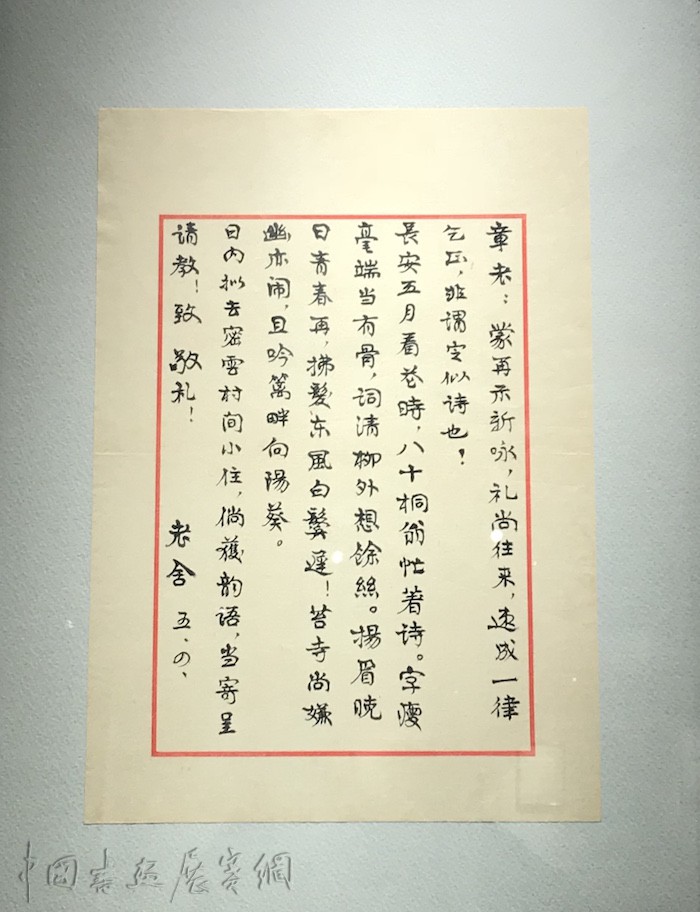 章老：蒙再示新咏，礼尚往来，速成一律
乞正，非谓定似诗也！
長安五月看花時，八十桐翁忙著诗。字瘦
毫端当有骨，词清柳外想餘絲。揚眉晓
日青春再，拂髮东風白鬓遲！苔寺尚嫌
幽亦闹，且吟篱畔向陽葵。
日内拟去密雲村间小住，倘獲韵语，当寄呈
请教！致 敬礼！
老舍 五、の、
中國書法展賽網